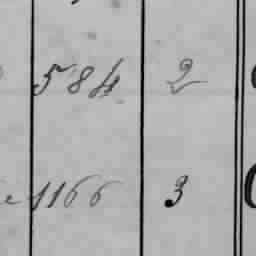 584 2
1166 3